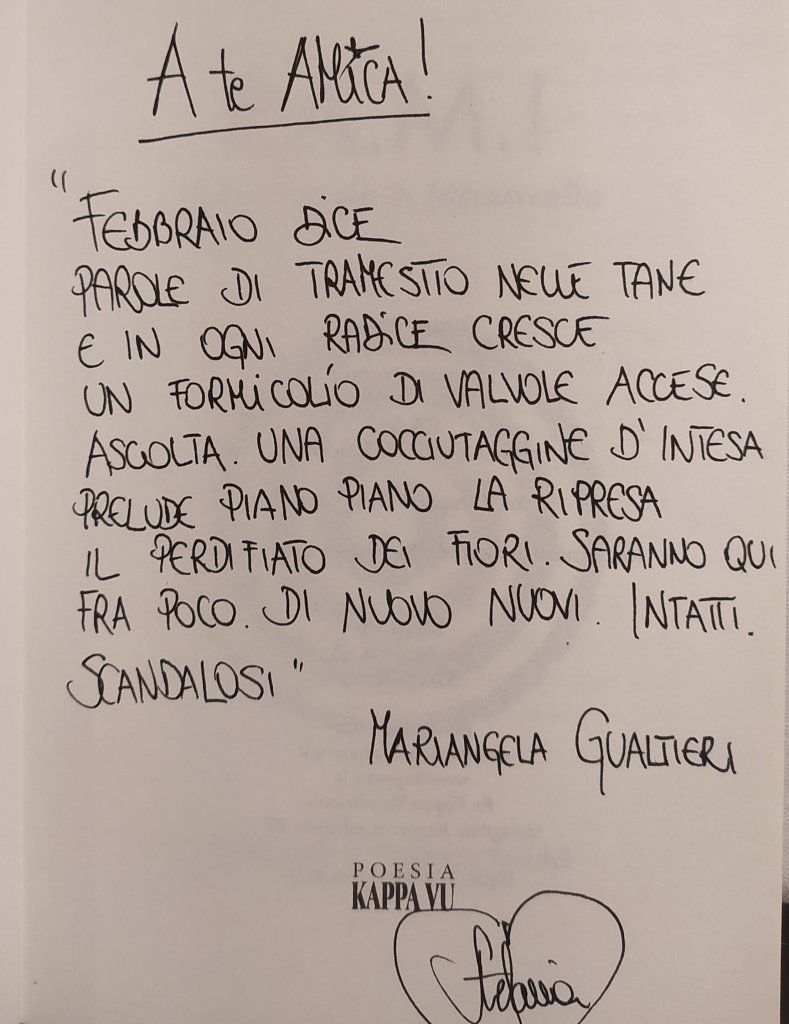 A te AMICA!
"FEBBRAIO DICE
PAROLE DI TRAMESTIO NELLE TANE
E IN OGNI RADICE CRESCE
UN FORMICOLÍO DI VALVOLE ACCESE.
ASCOLTA. UNA COCCIUTAGGINE D'INTESA
PRELUDE PIANO PIANO LA RIPRESA
IL PERDIFIATO DEI FIORI. SARANNO QUI
FRA POCO. DI NUOVO NUOVI. INTATTI.
SCANDALOSI"
MARIANGELA GUALTIERI
POESIA
KAPPA VU
Stefania